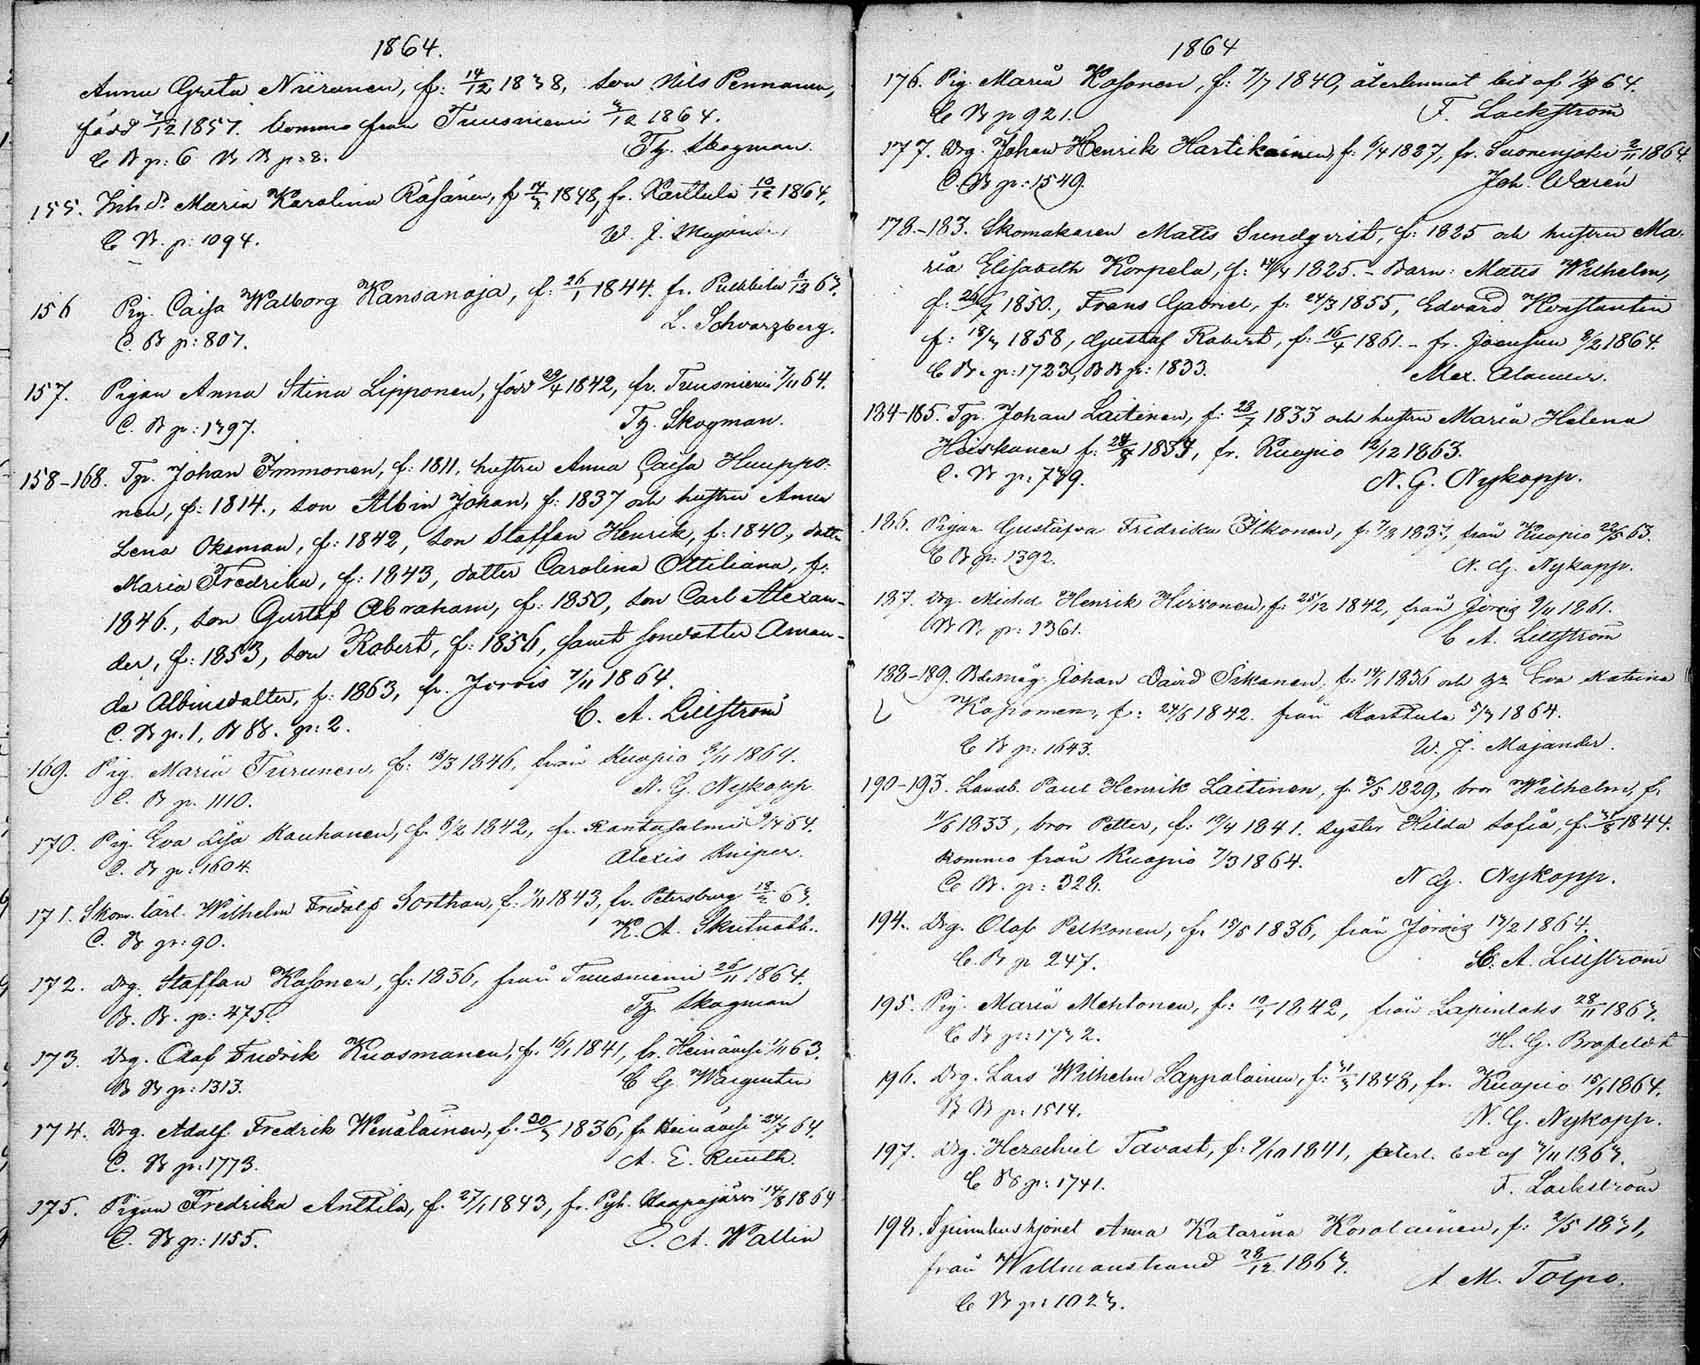 1864.
Anna Greta Niiranen, f: 14/12 1838, son Nils Pennanen,
född 7/12 1857. Komma från Tuusniemi 4/12 1864.
C B p: 6 B B p: 8. Tg. Skogman.
155. Inh. d:r Maria Karolina Räsänen, f 14/3 1848, fr. Karttula 10/12 1864,
C B. p: 1094. W. J. Majander,
156 Pig. Caisa Walborg Kansanoja, f: 26/1 1844. fr. Pulkkila 9/12 63.
C. B p: 807. L. Schvarzberg.
157. Pigan Anna Stina Lipponen, född 29/4 1842, fr. Tuusniemi 7/11 64.
C. B p: 1397. Tg. Skogman.
158-168. Tgr. Johan Immonen, f: 1811, hustru Anna Caisa Huuppo-
nen, f: 1814., son Albin Johan, f: 1837 och hustru Anna
Lena Oksman, f: 1842, son Staffan Henrik, f: 1840, dotter
Maria Fredrika, f: 1843, dotter Carolina Ottiliana, f:
1846., son Gustaf Abraham, f: 1850, son Carl Alexan-
der, f: 1853, son Robert, f: 1856, samt sondotter Aman-
da Albinsdotter, f: 1863, fr. Jorois 7/11 1864.
C. B p: 1, B B. p: 2. C. A. Lillström
169. Pig. Maria Turunen, f: 18/3 1846, från Kuopio 9/11 1864.
C. B p. 1110. N. G. Nykopp
170. Pig. Eva Lisa Kauhanen, f: 8/2 1842, fr. Rantasalmi 64.
C. B p: 1604. Alexis Kniper.
171. Skom. lärl. Wilhelm Fridolf Sorthan, f: 1/11 1843, fr. Petersburg 63.
C. B p: 90. K. A. Skutnabb.
172. Drg. Staffan Kosonen, f: 1836, från Tuusniemi 26/11 1864.
B. B. p: 475. Tg. Skogman
173. Drg. Olof Fredrik Kuosmanen, f. 10/1 1841, fr. Heinävesi 1/11 63.
B B p: 1313. C G. Wargentin
174. Drg. Adolf Fredrik Wenäläinen, f. 30/3 1836, fr Heinävesi 24/7 64.
C. B p: 1773. A. E. Ruuth.
175. Pigan Fredrika Anttila, f. 27/1 1843, fr. Pyh. Haapajärvi 14/8 1864
C. B p: 1155. A. Wallin
1864
176. Pig Maria Kosonen, f: 7/7 1840, återlemnat bet af 64.
C B p 921. F. Lackström
177. Drg. Johan Henrik Hartikainen, f: 6/4 1827, fr. Suonenjoki 2/11 1864
C. B p: 1549. Joh. Warén
178-183. Skomakaren Matts Sundqvist, f: 1825 och hustru Ma-
ria Elisabeth Korpela, f: 14/4 1825. - Barn: Matts Wilhelm,
f: 26/7 1850., Frans Gabriel, f: 24/3 1855, Edvard Konstantin
f: 18/3 1858, Gustaf Robert, f: 16/4 1861. - fr. Joensuu 8/2 1864.
C B. p: 1723, B B p: 1833. Alex. Alanus.
184-185. Tgr. Johan Laitinen, f: 23/7 1833 och hustru Maria Helena
Heiskanen f: 1837, fr. Kuopio 12/12 1863.
C. B p: 779. N. G. Nykopp.
186. Pigan Gustafva Fredrika Ikonen, f: 7/8 1837, från Kuopio 22/5 63.
C B p: 1392. N. G. Nykopp.
187. Drg. Michel Henrik Hirvonen, f: 25/12 1842, från Jorois 9/11 1861.
B B. p: 1361. C A. Lillström
188-189. Bdsmåg. Johan David Siskanen, f: 14/1 1836 och h:u Eva Katrina
Kaponen, f: 24/6 1842. från Karttula 5/3 1864.
C B p: 1643. W. J. Majander.
190-193. Landb. Paul Henrik Laitinen, f. 3/5 1829, bror Wilhelm, f:
1/6 1833, bror Petter, f: 19/4 1841. syster Hilda Sofia, f. 31/8 1844.
komma från Kuopio 7/3 1864.
C B. p: 328. N G. Nykopp.
194. Drg. Olof Pelkonen, f: 15/5 1836, från Jorois 14/2 1864.
C. B p 247. C. A. Lillström
195. Pig. Maria Mehtonen, f: 10/1 1842, från Lapinlaks 28/11 1863.
C B p: 1732. H. G. Brofeldt
196. Drg. Lars Wilhelm Lappalainen, f: 31/3 1848, fr. Kuopio 15/1 1864.
B B p: 1514. N. G. Nykopp.
197. Drg. Herschel Tavast, f: 9/10 1841, återl. bet af 7/11 1863.
C B p: 1741. F. Lackström
198. Tjenstehusthjonet Anna Katarina Karolainen, f: 2/5 1831,
från Willmanstrand 28/12 1863. A M. Tolpo.
C B p: 1023.